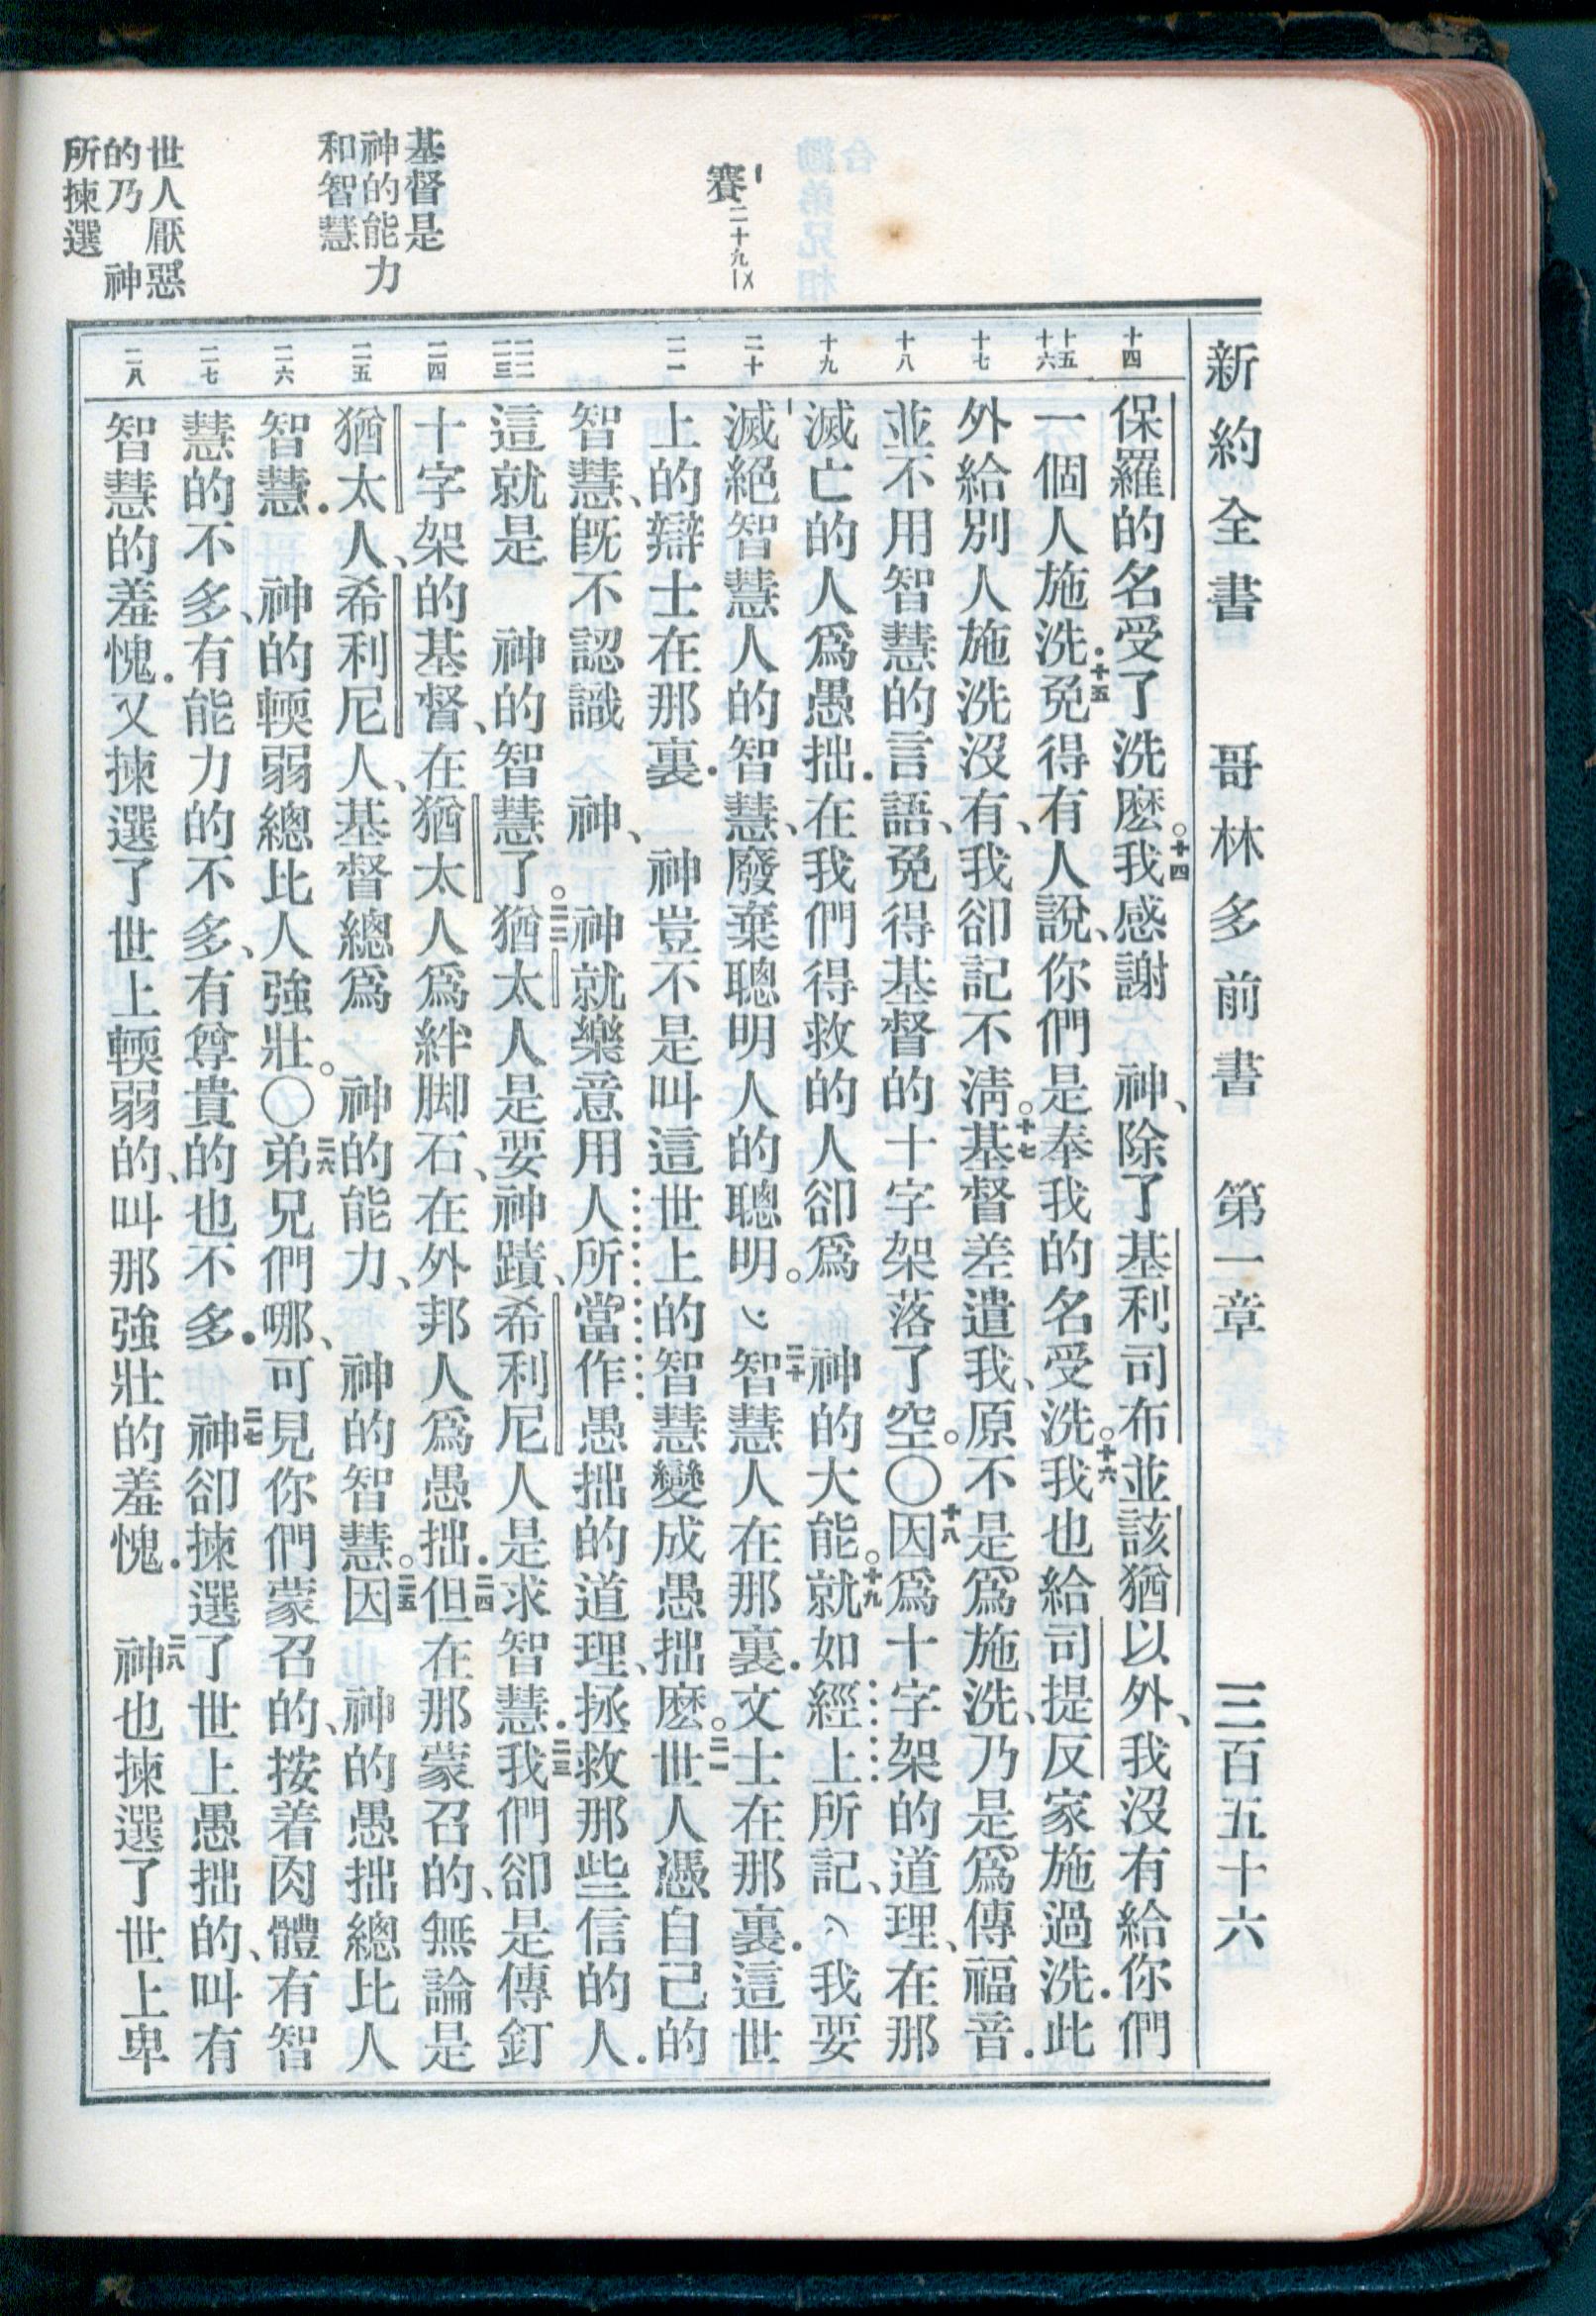 新約全書 哥林多前書 第一章 三百五十六
十四
十五
十六
十七
十八
十九
二十
二一
二二
二三
二四
二五
二六
二七
二八
保羅的名受了洗麽。十四我感謝 神、除了基利司布並該猶以外、我沒有給你們
一個人施洗．十五免得有人說、你們是奉我的名受洗。十六我也給司提反家施過洗．此
外給別人施洗沒有、我卻記不淸。十七基督差遣我、原不是爲施洗、乃是爲傳福音．
並不用智慧的言語、免得基督的十字架落了空。〇十八因爲十字架的道理、在那
滅亡的人爲愚拙．在我們得救的人卻爲 神的大能。十九就如經上所記、我要
滅絕智慧人的智慧、廢棄聰明人的聰明。二十智慧人在那裏．文士在那裏．這世
上的辯士在那裏． 神豈不是叫這世上的智慧變成愚拙麽。二一世人憑自己的
智慧、旣不認識 神、 二二神就樂意用人所當作愚拙的道理、拯救那些信的人．
這就是 神的智慧了。猶太人是要神蹟、希利尼人是求智慧．二三我們卻是傳釘
十字架的基督、在猶太人爲絆脚石、在外邦人爲愚拙．二四但在那蒙召的、無論是
猶太人、希利尼人、基督總爲 神的能力、 神的智慧。二五因 神的愚拙總比人
智慧． 神的輭弱總比人強壯。〇二六弟兄們哪、可見你們蒙召的、按着肉體有智
慧的不多、有能力的不多、有尊貴的也不多． 二七神卻揀選了世上愚拙的、叫有
智慧的羞愧．又揀選了世上輭弱的、叫那強壯的羞愧． 二八神也揀選了世上卑
賽二十九
基督是
神的能力
和智慧
世人厭惡
的乃 神
所揀選